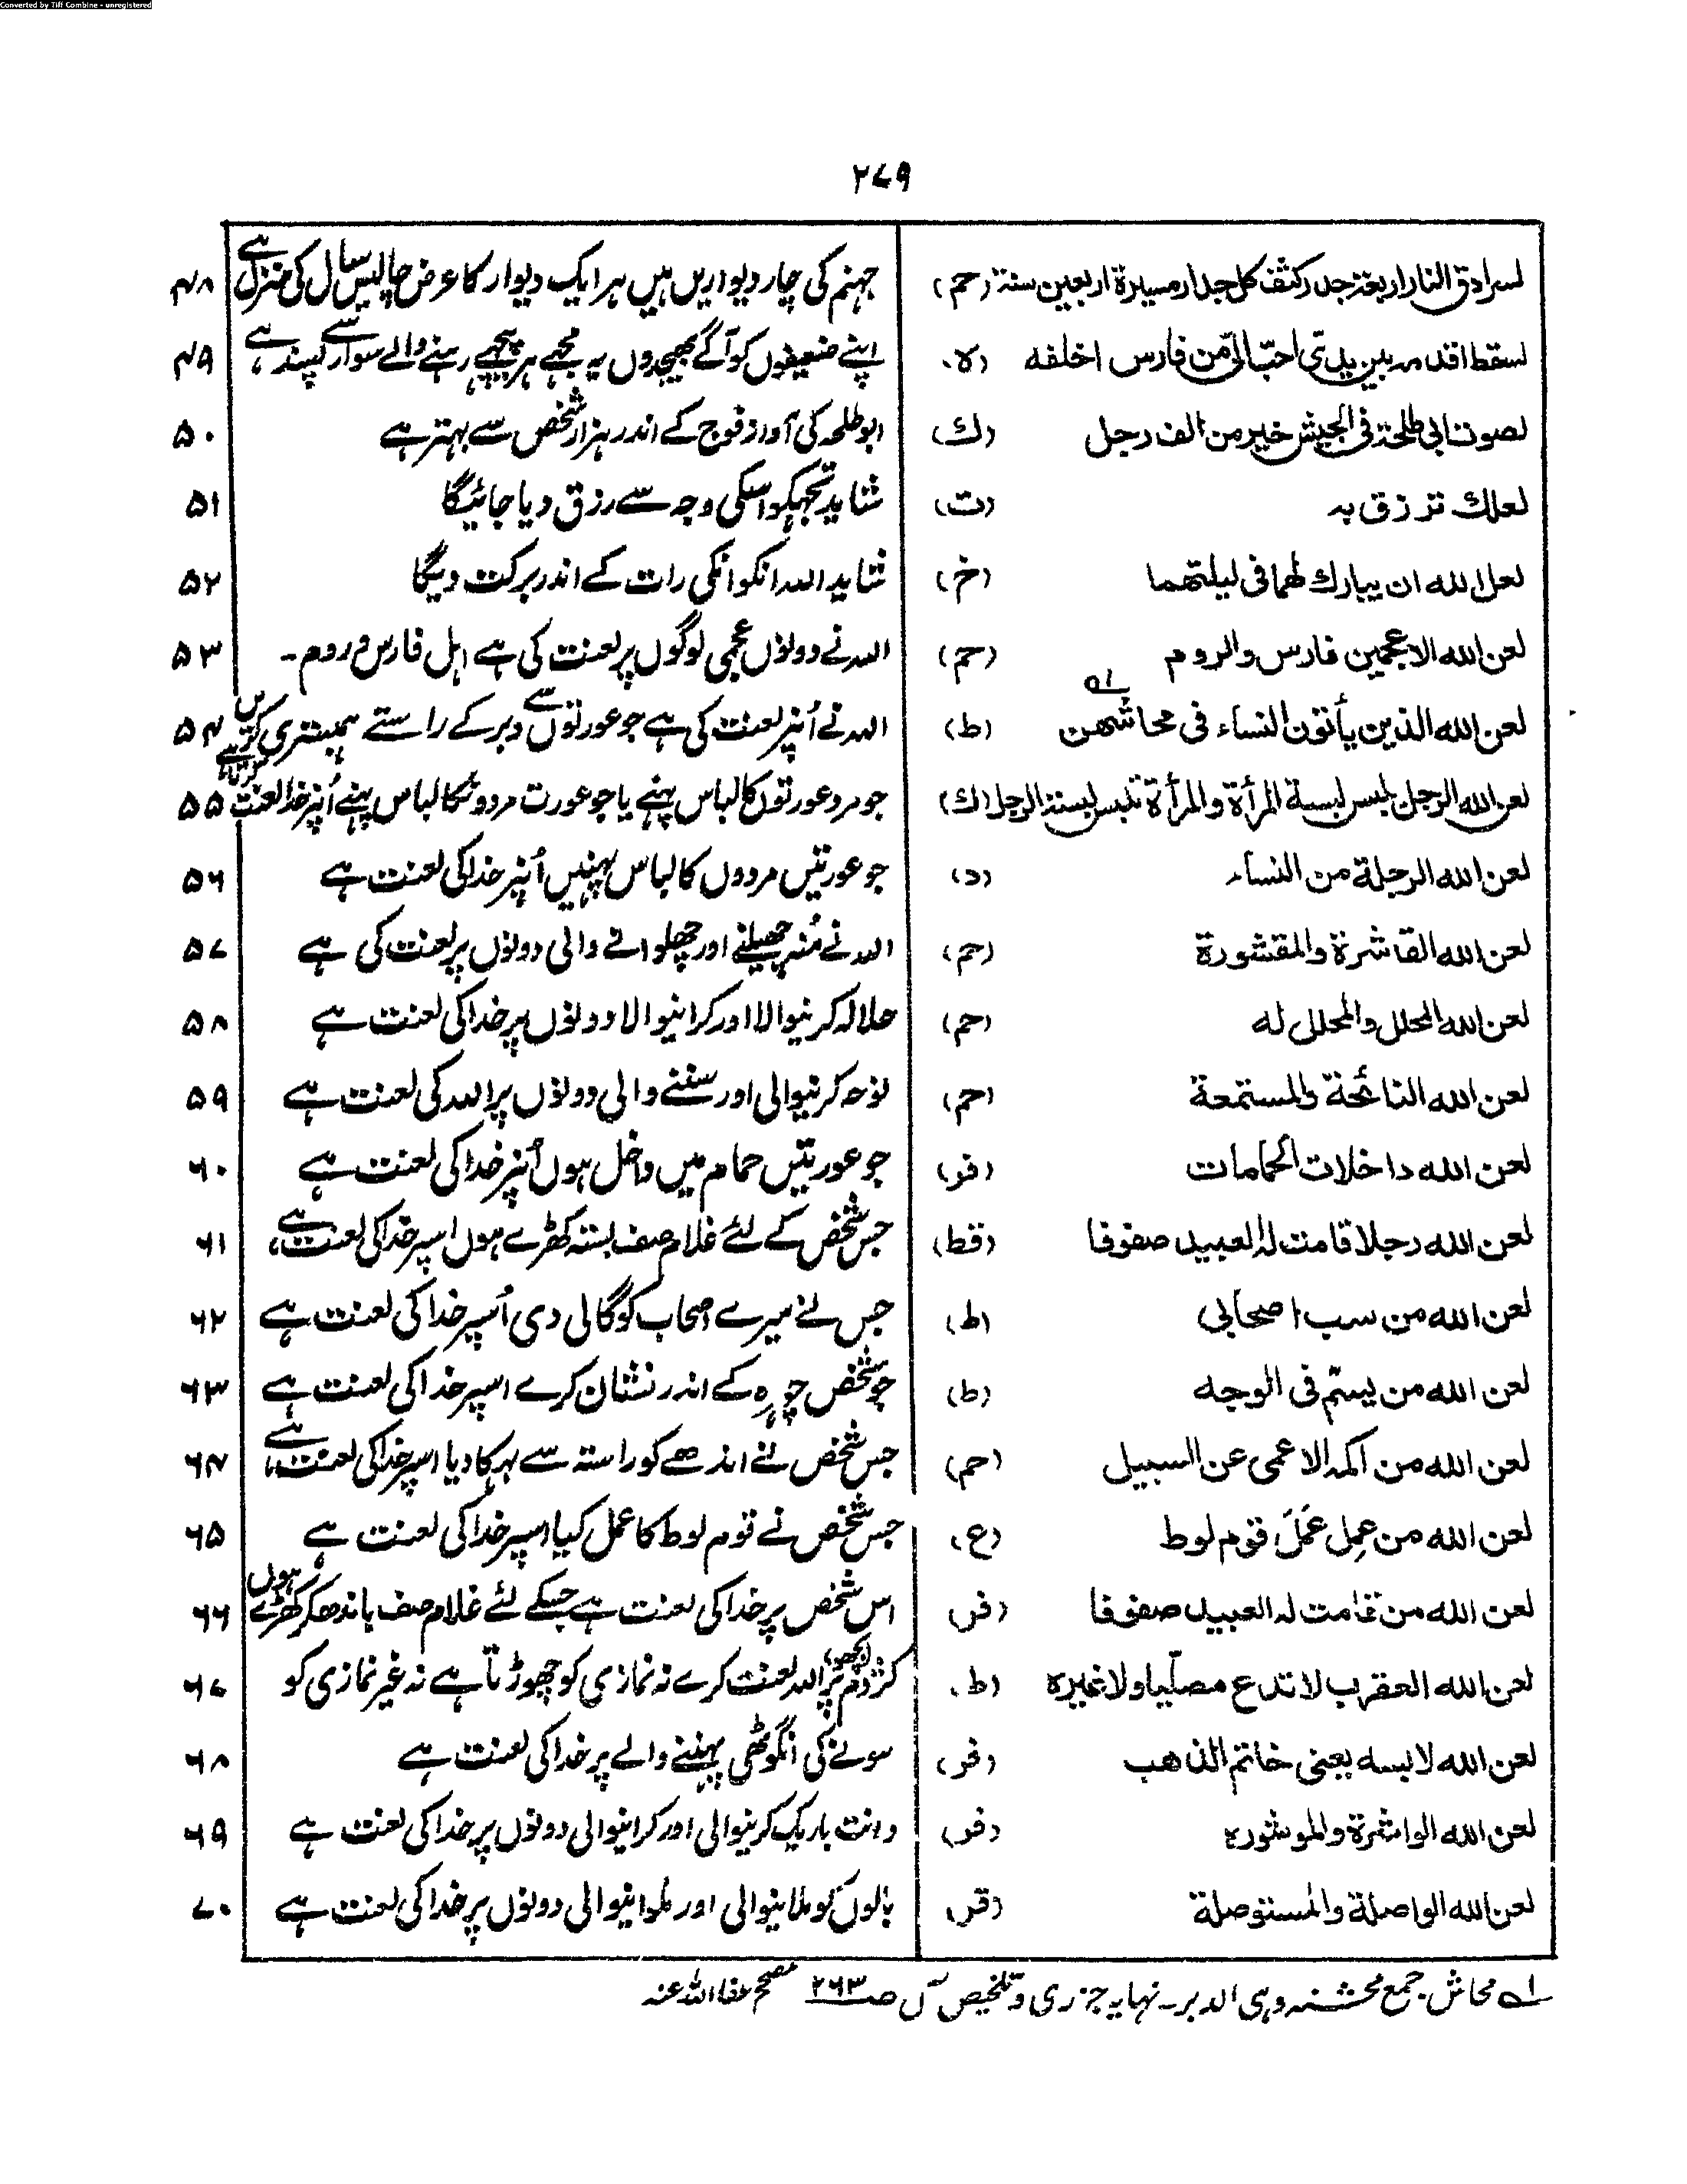 Converted by Tiff Combine - unregistered
۲۷۹
لسرادق النار اربعة جدر کثف کل جدار مسیرة اربعین سنة (حم) جہنم کی چار دیواریں ہیں ہر ایک دیوار کا عرض چالیس سال کی منزل ہے ۴۸
لسقط اقدمہ بین یدی احبّ الیّ من فارس اخلفه (ہ) اپنے ضعیفوں کو آگے بھیجدوں یہ مجھے ہر پیچھے رہنے والے سوار سے پسند ہے ۴۹
لصوت ابی طلحة فی الجیش خیر من الف رجل (ك) ابو طلحہ کی آواز فوج کے اندر ہزار شخص سے بہتر ہے ۵۰
لعلك ترزق به (ت) شاید تجھکو اسکی وجہ سے رزق دیا جائیگا ۵۱
لعل الله ان یبارك لهما فی لیلتهما (خ) شاید اللہ انکو انکی رات کے اندر برکت دیگا ۵۲
لعن الله الاعجمین فارس والروم (حم) اللہ نے دونوں عجمی لوگوں پر لعنت کی ہے اہل فارس و روم۔ ۵۳
لعن الله الذین یأتون النساء فی محاشهن ۱ (ط) اللہ نے اُنپر لعنت کی ہے جو عورتوں سے دبر کے راستے ہمبستری کریں ۵۴
لعن الله الرجل یلبس لبسة المرأة والمرأة تلبس لبسة الرجل (ك) جو مرد عورتوں کا لباس پہنے یا جو عورت مردونکا لباس پہنے اُنپر خدا لعنت کرتا ہے ۵۵
لعن الله الرجلة من النساء (د) جو عورتیں مردوں کا لباس پہنیں اُنپر خدا کی لعنت ہے ۵۶
لعن الله القاشرة والمقشورة (حم) اللہ نے مُنہ چھیلنے اور چھلوانے والی دونوں پر لعنت کی ہے ۵۷
لعن الله المحلل والمحلل له (حم) حلالہ کرنیوالا اور کرانیوالا دونوں پر خدا کی لعنت ہے ۵۸
لعن الله النائحة والمستمعة (حم) نوحہ کرنیوالی اور سننے والی دونوں پر اللہ کی لعنت ہے ۵۹
لعن الله داخلات الحمامات (فر) جو عورتیں حمام میں داخل ہوں اُنپر خدا کی لعنت ہے ۶۰
لعن الله رجلا قامت له العبید صفوفا (قط) جس شخص کے لئے غلام صف بستہ کھڑے ہوں اسپر خدا کی لعنت ہے، ۶۱
لعن الله من سب اصحابی (ط) جس نے میرے اصحاب کو گالی دی اُسپر خدا کی لعنت ہے ۶۲
لعن الله من یسّم فی الوجه (ط) جو شخص چہرہ کے اندر نشان کرے اسپر خدا کی لعنت ہے ۶۳
لعن الله من اکمه الاعمی عن السبیل (حم) جس شخص نے اندھے کو راستہ سے بہکا دیا اسپر خدا کی لعنت ہے، ۶۴
لعن الله من عمِل عَمَلَ قوم لوط (ع) جس شخص نے قوم لوط کا عمل کیا اسپر خدا کی لعنت ہے ۶۵
لعن الله من قامت له العبید صفوفا (فر) اس شخص پر خدا کی لعنت ہے جسکے لئے غلام صف باندھ کر کھڑے ہوں ۶۶
لعن الله العقرب لا تدع مصلّیا ولا غیره (ط) کژدم بچھو پر اللہ لعنت کرے نہ نمازی کو چھوڑتا ہے نہ غیر نمازی کو ۶۷
لعن الله لابسه یعنی خاتم الذهب (فر) سونے کی انگوٹھی پہننے والے پر خدا کی لعنت ہے ۶۸
لعن الله الواشرة والموشوره (فر) دانت باریک کرنیوالی اور کرانیوالی دونوں پر خدا کی لعنت ہے ۶۹
لعن الله الواصلة والمستوصلة (قر) بالوں کو ملانیوالی اور ملوانیوالی دونوں پر خدا کی لعنت ہے ۷۰
۱ محاش جمع محشته وہی الدبر۔ نہایہ جزری و تلخیص آں ص ۲۶۳ مصحح عفا اللہ عنہ